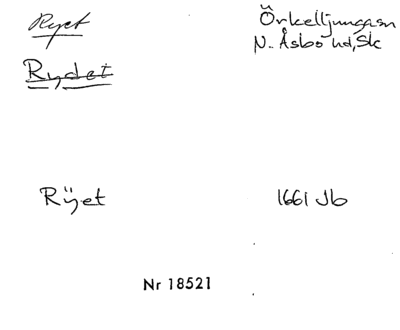 Ryet
Örkelljungasn
N. Åsbo hd, Sk
Rydet
Rÿet
1661 Jb
Nr 18521